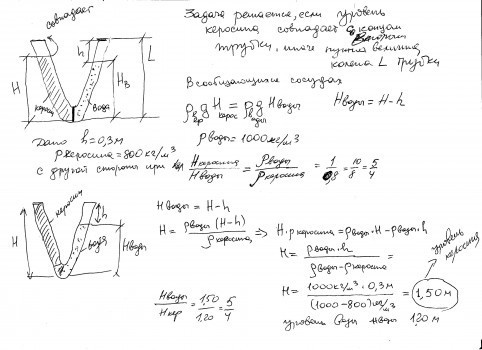 совпадает
Задача решается, если уровень
керосина совпадает с концом
трубки, иначе нужна величина
колена L трубки
H
h
Hв
L
керос
вода
В сообщающихся сосудах
ρкер g Hкерос = ρводы g Hводы
Hводы = H-h
Дано h=0,3м
ρводы = 1000кг/м³
ρкеросина = 800кг/м³
с другой стороны при
Hкеросина/Hводы = ρводы/ρкеросина = 1/0,8 = 10/8 = 5/4
керосин
H
h
вода
Hводы
Hводы = H-h
H = ρводы (H-h)/ρкеросина ⇒ H·ρкеросина = ρводы·H - ρводы·h
H = ρводы·h/ρводы-ρкеросина =
H = 1000кг/м³ · 0,3м/(1000-800)кг/м³ = 1,50м
уровень керосина
Hводы/Hкер = 1,50/1,20 = 5/4
уровень воды Hводы 1,20м